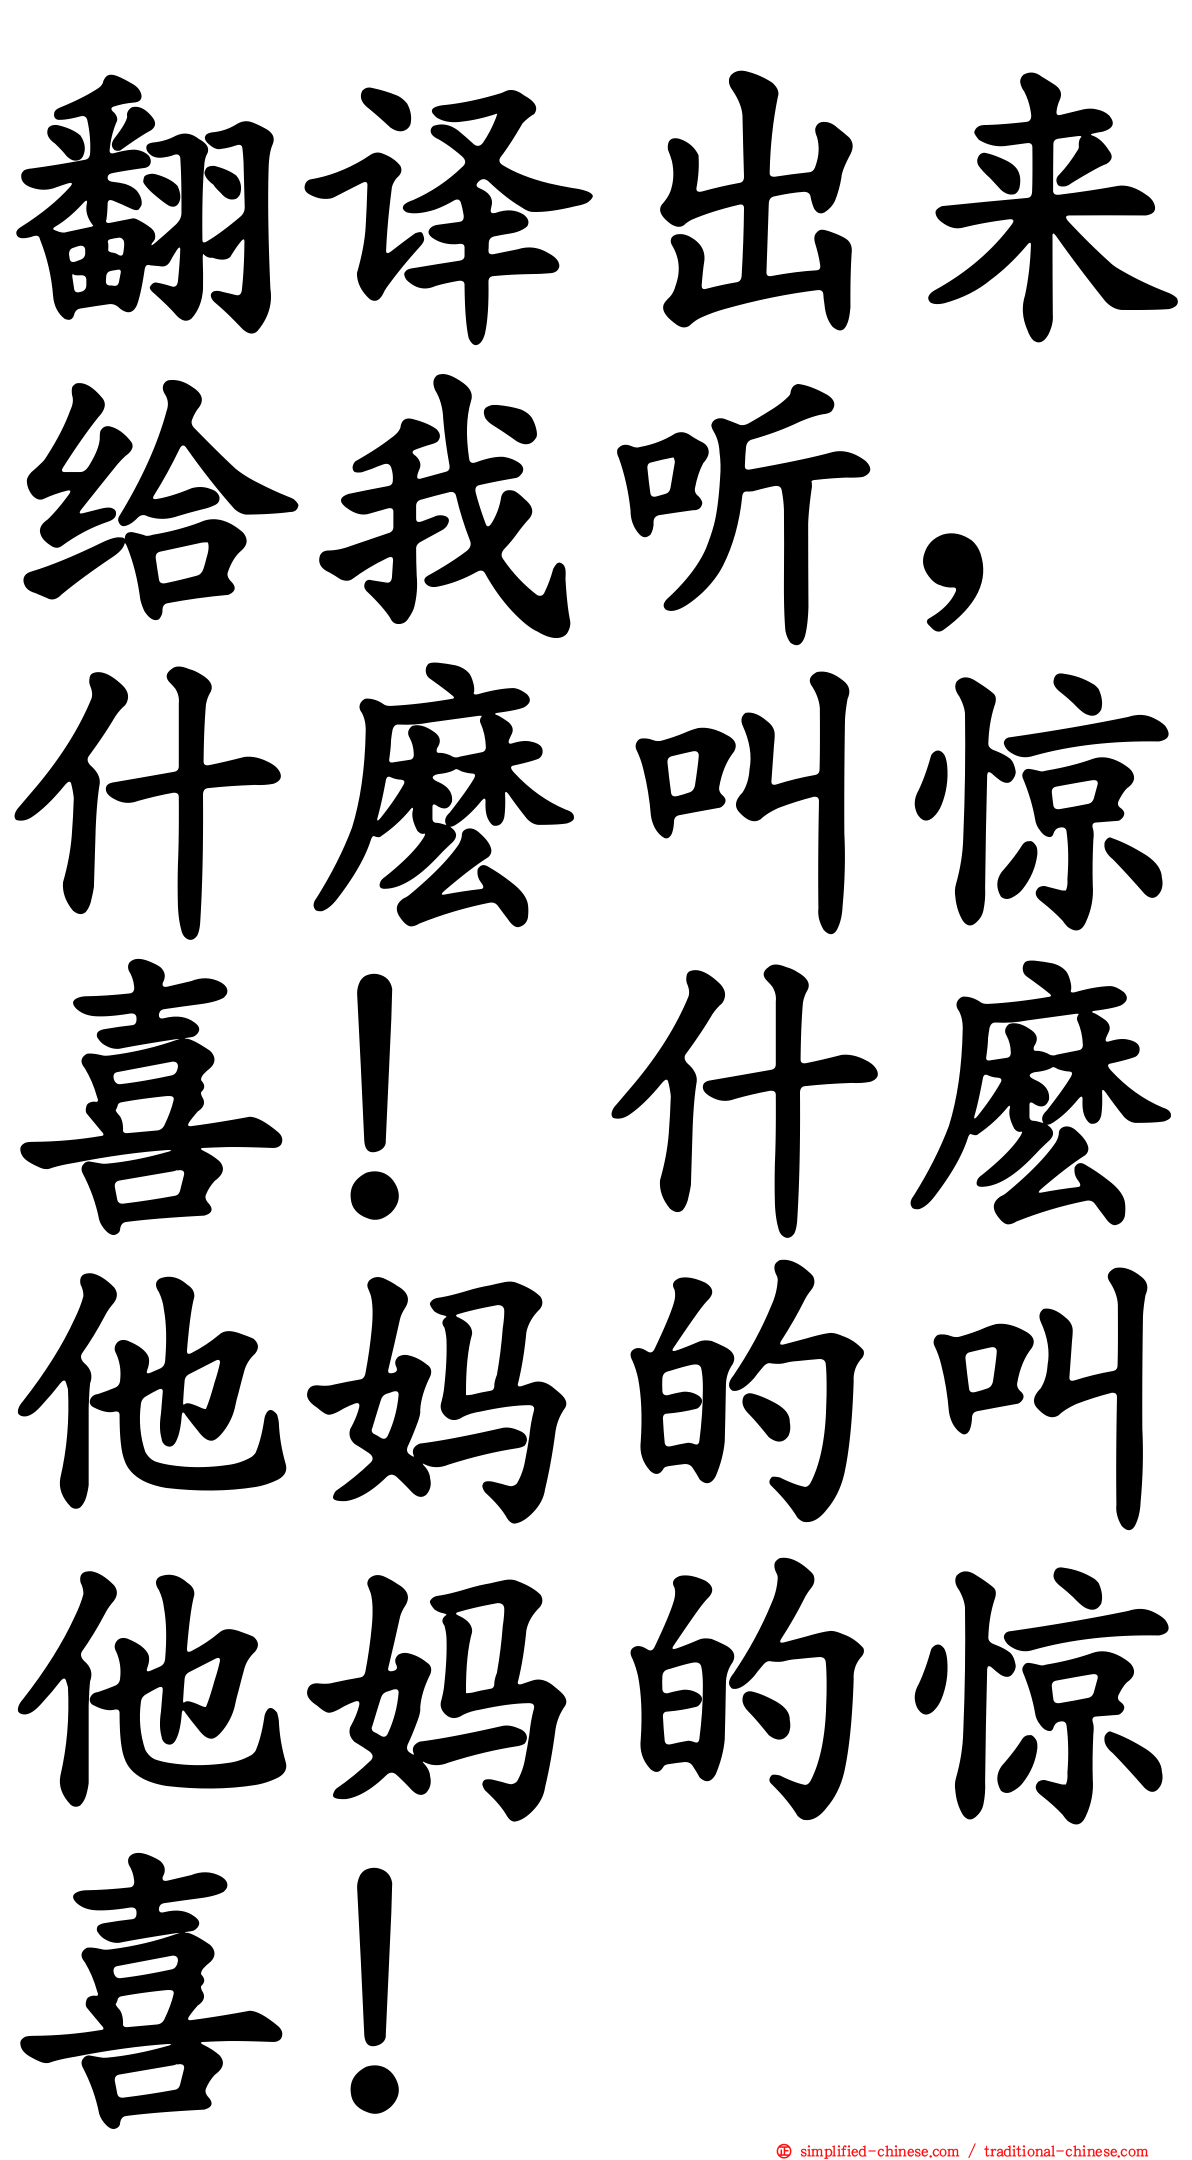 翻译出来
给我听，
什麽叫惊
喜！什麽
他妈的叫
他妈的惊
喜！
㊣ simplified-chinese.com / traditional-chinese.com